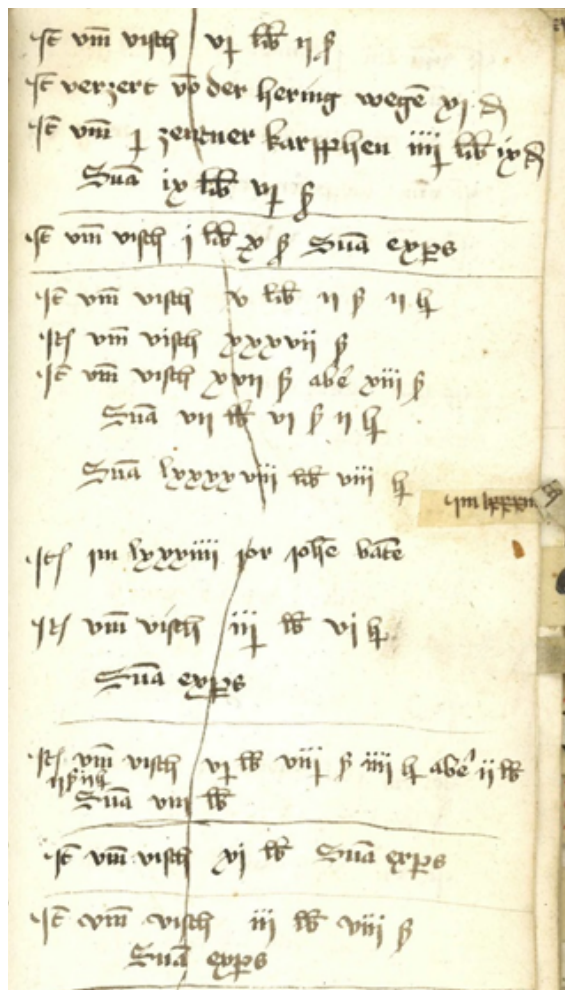 It vm visch vj lib ij ß
It verzert vo der hering wegē xj d
It vm j zentner karpphen iiij lib ix d
Sūa ix lib vj ß
It vm visch j lib x ß Sūa exps
It vm visch v lib ij ß ij h
Itē vm visch xxxvii ß
It vm visch xvii ß abe xiii ß
Sūa vii lb vi ß ii h
Sūa lxxxxviii lib viii h
im lxxxiiii
Itē im lxxxiiii jor johē bāte
Itē vm visch iij lb vi h
Sūa exps
Itē vm visch vj lb viij ß iiij h abe ii lb
ii ß iiii h
Sūa viii lb
It vm visch xj lb Sūa exps
It vm visch iii lb viii ß
Sūa exps